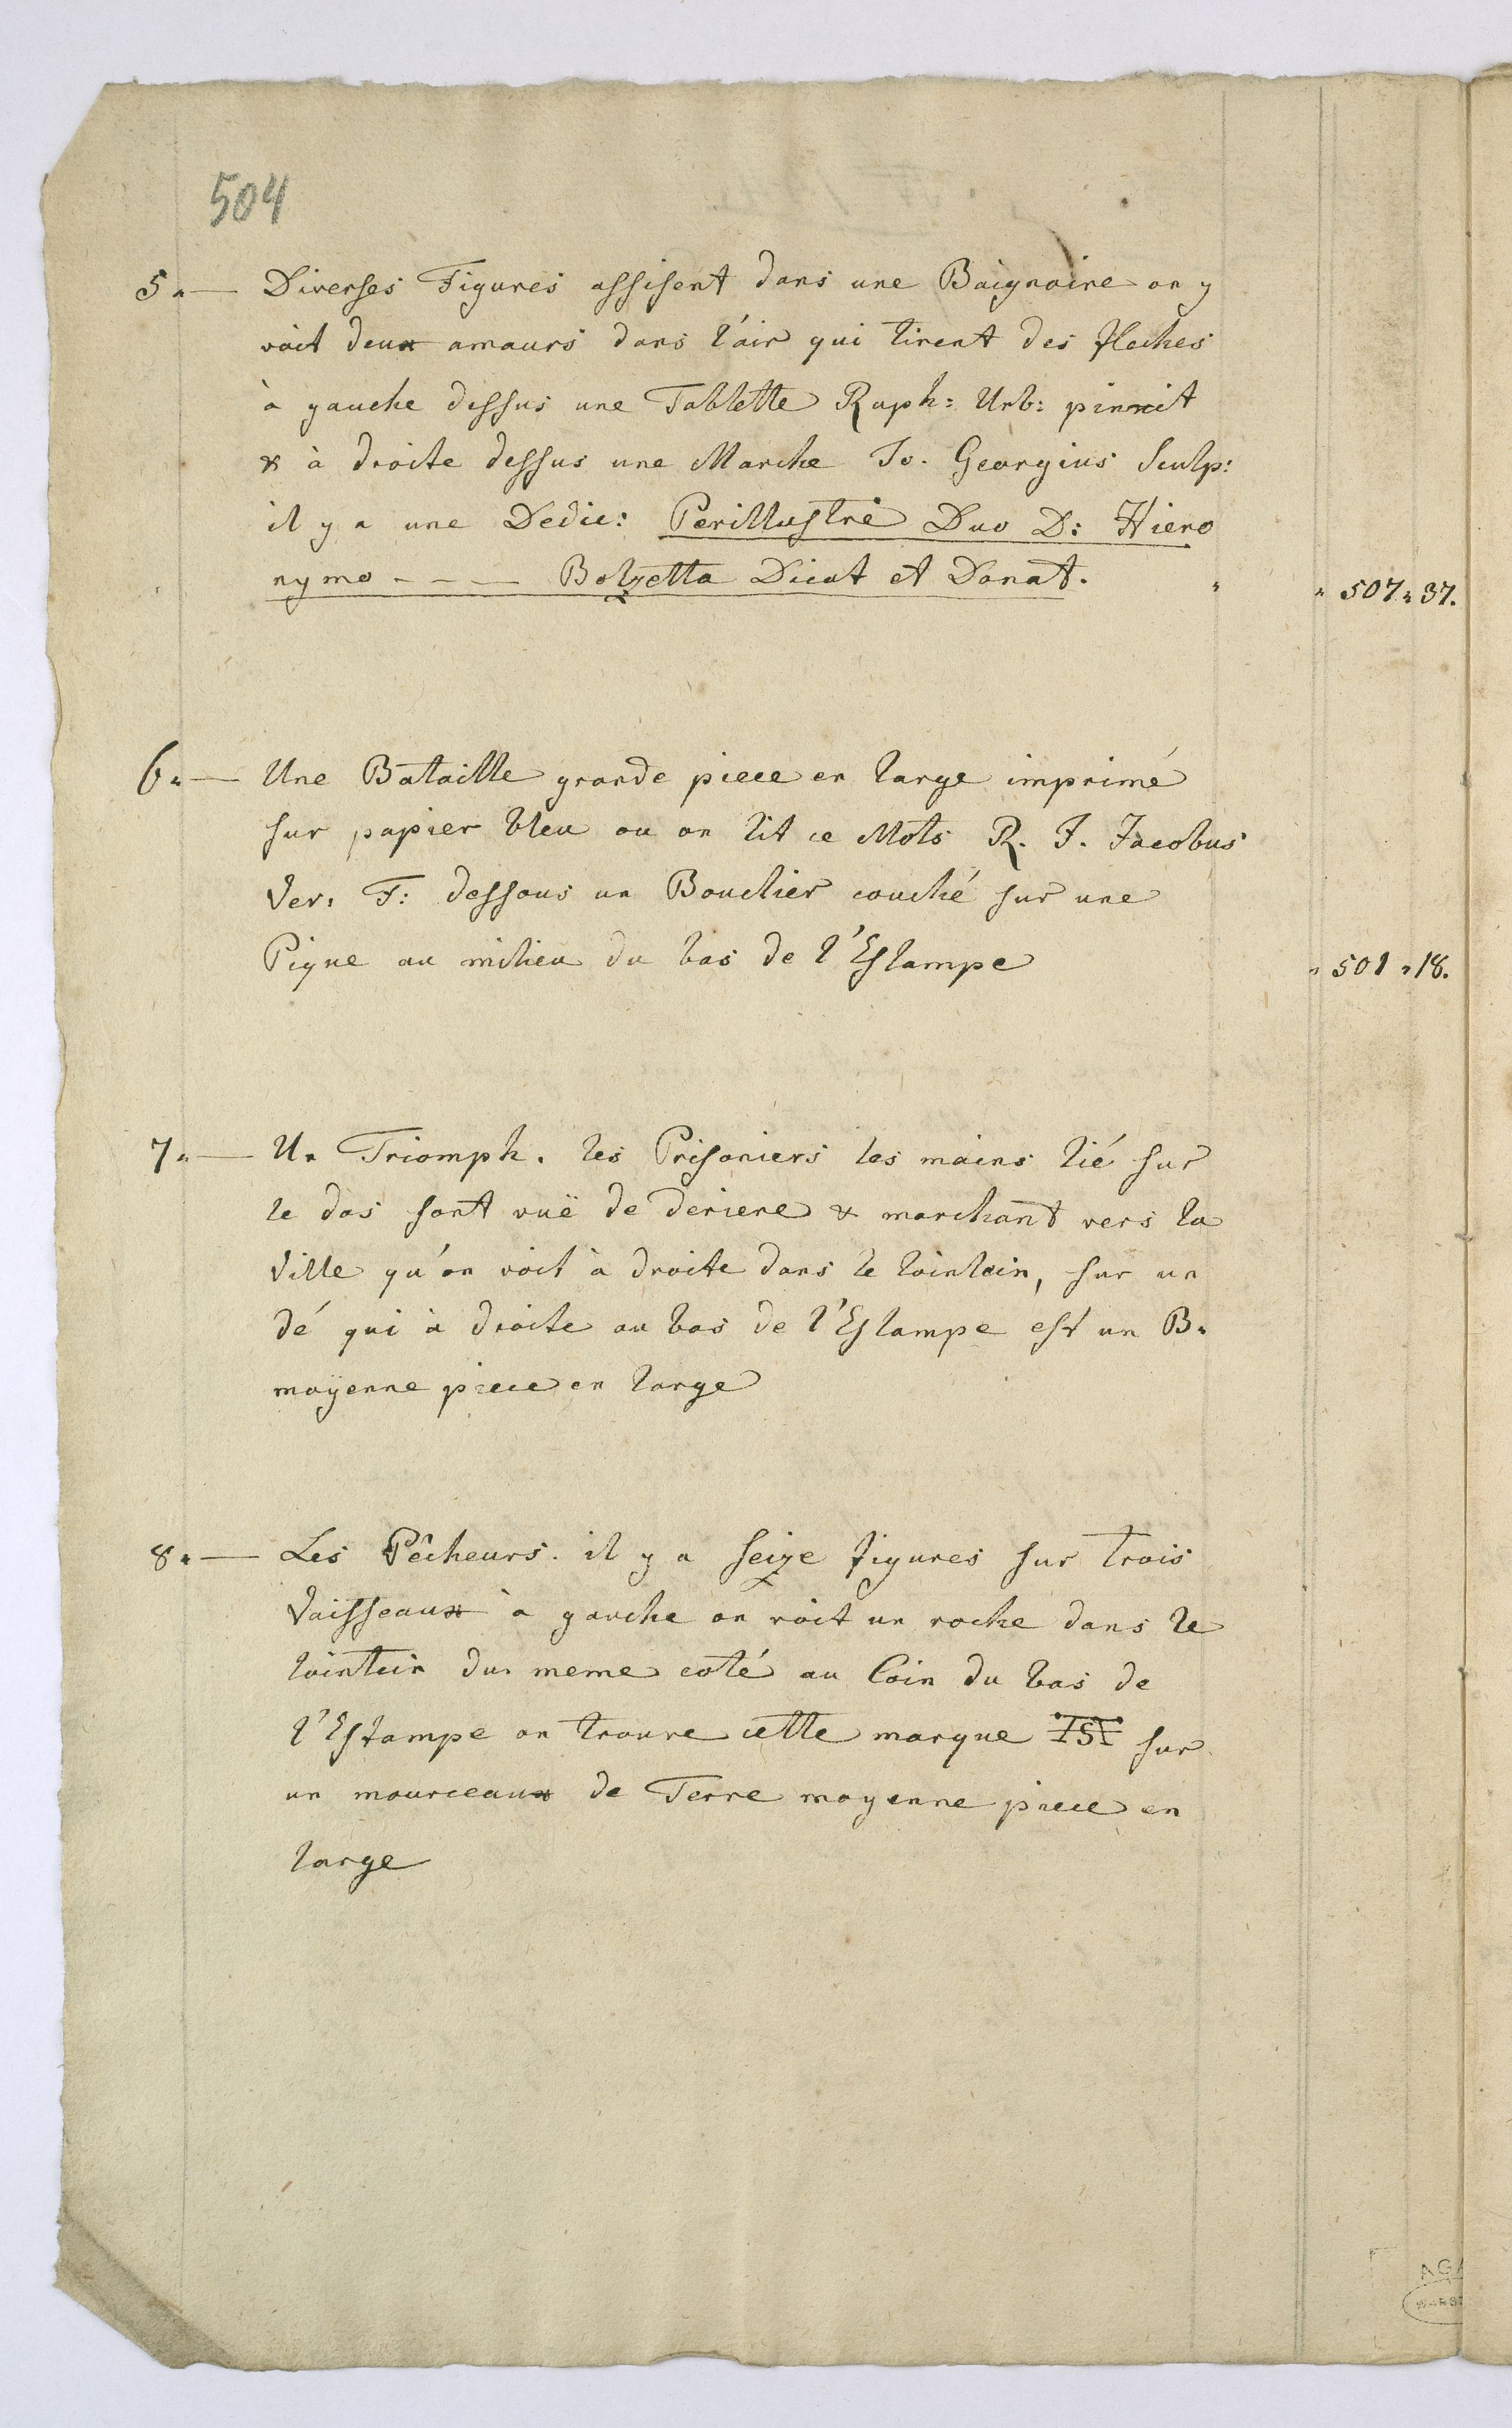 504
5. — Diverses Figures assisent dans une Baignoire on y
voit deux amours dans l'air qui tirent des fleches
à gauche dessus une Tablette Raph: Urb: pinxit
& à droite dessus une Marche Io. Georgius Sculp:
il y a une Dedic: Perillustri Duo D: Hiero
nymo - - - — Bolzetta Dicat et Donat. " " 507 " 37.
6. — Une Bataille grande piece en large imprimé
sur papier bleu ou on lit ce Mots R. I. Jacobus
Ver. F: dessous un Bouclier couché sur une
Pique au milieu du bas de l'Estampe " 501 " 18.
7. — Un Triomph. les Prisoniers les mains lié sur
le dos sont vuë de deriere & marchant vers la
Ville qu'on voit à droite dans le lointain, sur un
dé qui à droite au bas de l'Estampe est un B.
moyenne piece en large
8. — Les Pêcheurs. il y a seize figures sur trois
Vaisseaux à gauche on voit un roche dans le
lointain du meme coté au Coin du bas de
l'Estampe on trouve cette marque ISV sur
un mourceaux de Terre moyenne piece en
large
AGA